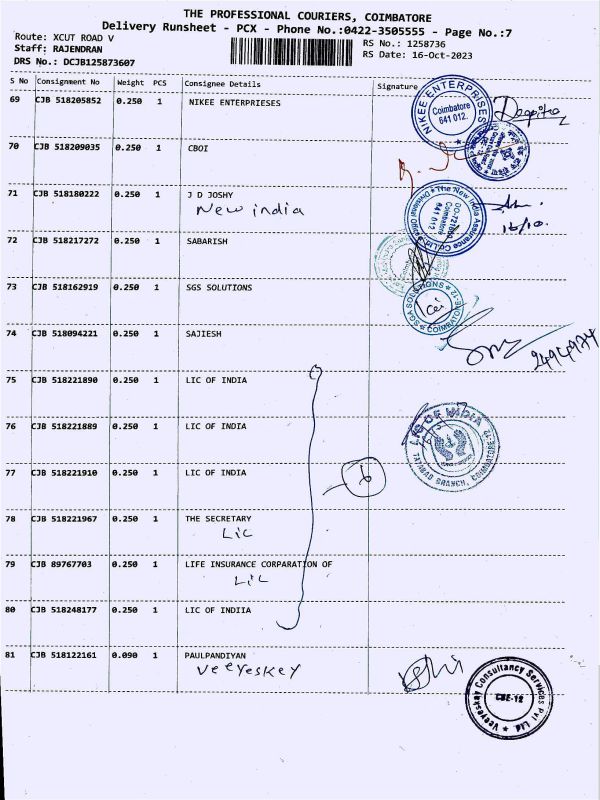 THE PROFESSIONAL COURIERS, COIMBATORE
Delivery Runsheet - PCX - Phone No.:0422-3505555 - Page No.:7
Route: XCUT ROAD V
RS No.: 1258736
Staff: RAJENDRAN
RS Date: 16-Oct-2023
DRS No.: DCJB125873607
S No Consignment No Weight PCS Consignee Details Signature
69 CJB 518205852 0.250 1 NIKEE ENTERPRIESES
NIKEE ENTERPRISES
Coimbatore
641 012.
70 CJB 518209035 0.250 1 CBOI
71 CJB 518180222 0.250 1 J D JOSHY
New india
The New India Assurance Co Ltd
Divisional Office
Coimbatore
641 012
16/10.
72 CJB 518217272 0.250 1 SABARISH
73 CJB 518162919 0.250 1 SGS SOLUTIONS
SGA SOLUTIONS
COIMBATORE-12
74 CJB 518094221 0.250 1 SAJIESH
75 CJB 518221890 0.250 1 LIC OF INDIA
76 CJB 518221889 0.250 1 LIC OF INDIA
LIC OF INDIA
TATABAD BRANCH, COIMBATORE-12
77 CJB 518221910 0.250 1 LIC OF INDIA
6
78 CJB 518221967 0.250 1 THE SECRETARY
LIC
79 CJB 89767703 0.250 1 LIFE INSURANCE CORPARATION OF
LIC
80 CJB 518248177 0.250 1 LIC OF INDIIA
81 CJB 518122161 0.090 1 PAULPANDIYAN
veeyeskey
Veeyeskay Consultancy Services Pvt Ltd
CBE-12